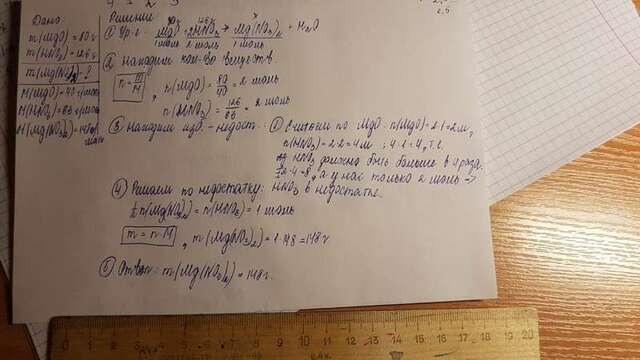 Дано
m(MgO)=80г
m(HNO₃)=126г
m(Mg(NO₃)₂)-?
M(MgO)=40 г/моль
M(HNO₃)=63 г/моль
M(Mg(NO₃)₂)=148 г/моль
Решение
① Ур.
MgO+2HNO₃→Mg(NO₃)₂+H₂O
1 моль 2 моль 1 моль
② Находим кол-во веществ
n=m/M, n(MgO)=80/40=2 моль
n(HNO₃)=126/63=2 моль
③ Находим изб-недост. ① Решаем по MgO n(MgO)=2
n(HNO₃)=2·2=4м
HNO₃ должно быть больше в
а у нас только 2 моль =>
HNO₃ в недостатке.
④ Решаем по недостатку
n(Mg(NO₃)₂)=n(HNO₃)=1 моль
m=n·M, m(Mg(NO₃)₂)=1·148=148г
⑤ Ответ: m(Mg(NO₃)₂)=148г.
1 2 3 4 5 6 7 8 9 10 11 12 13 14 15 16 17 18 19 20